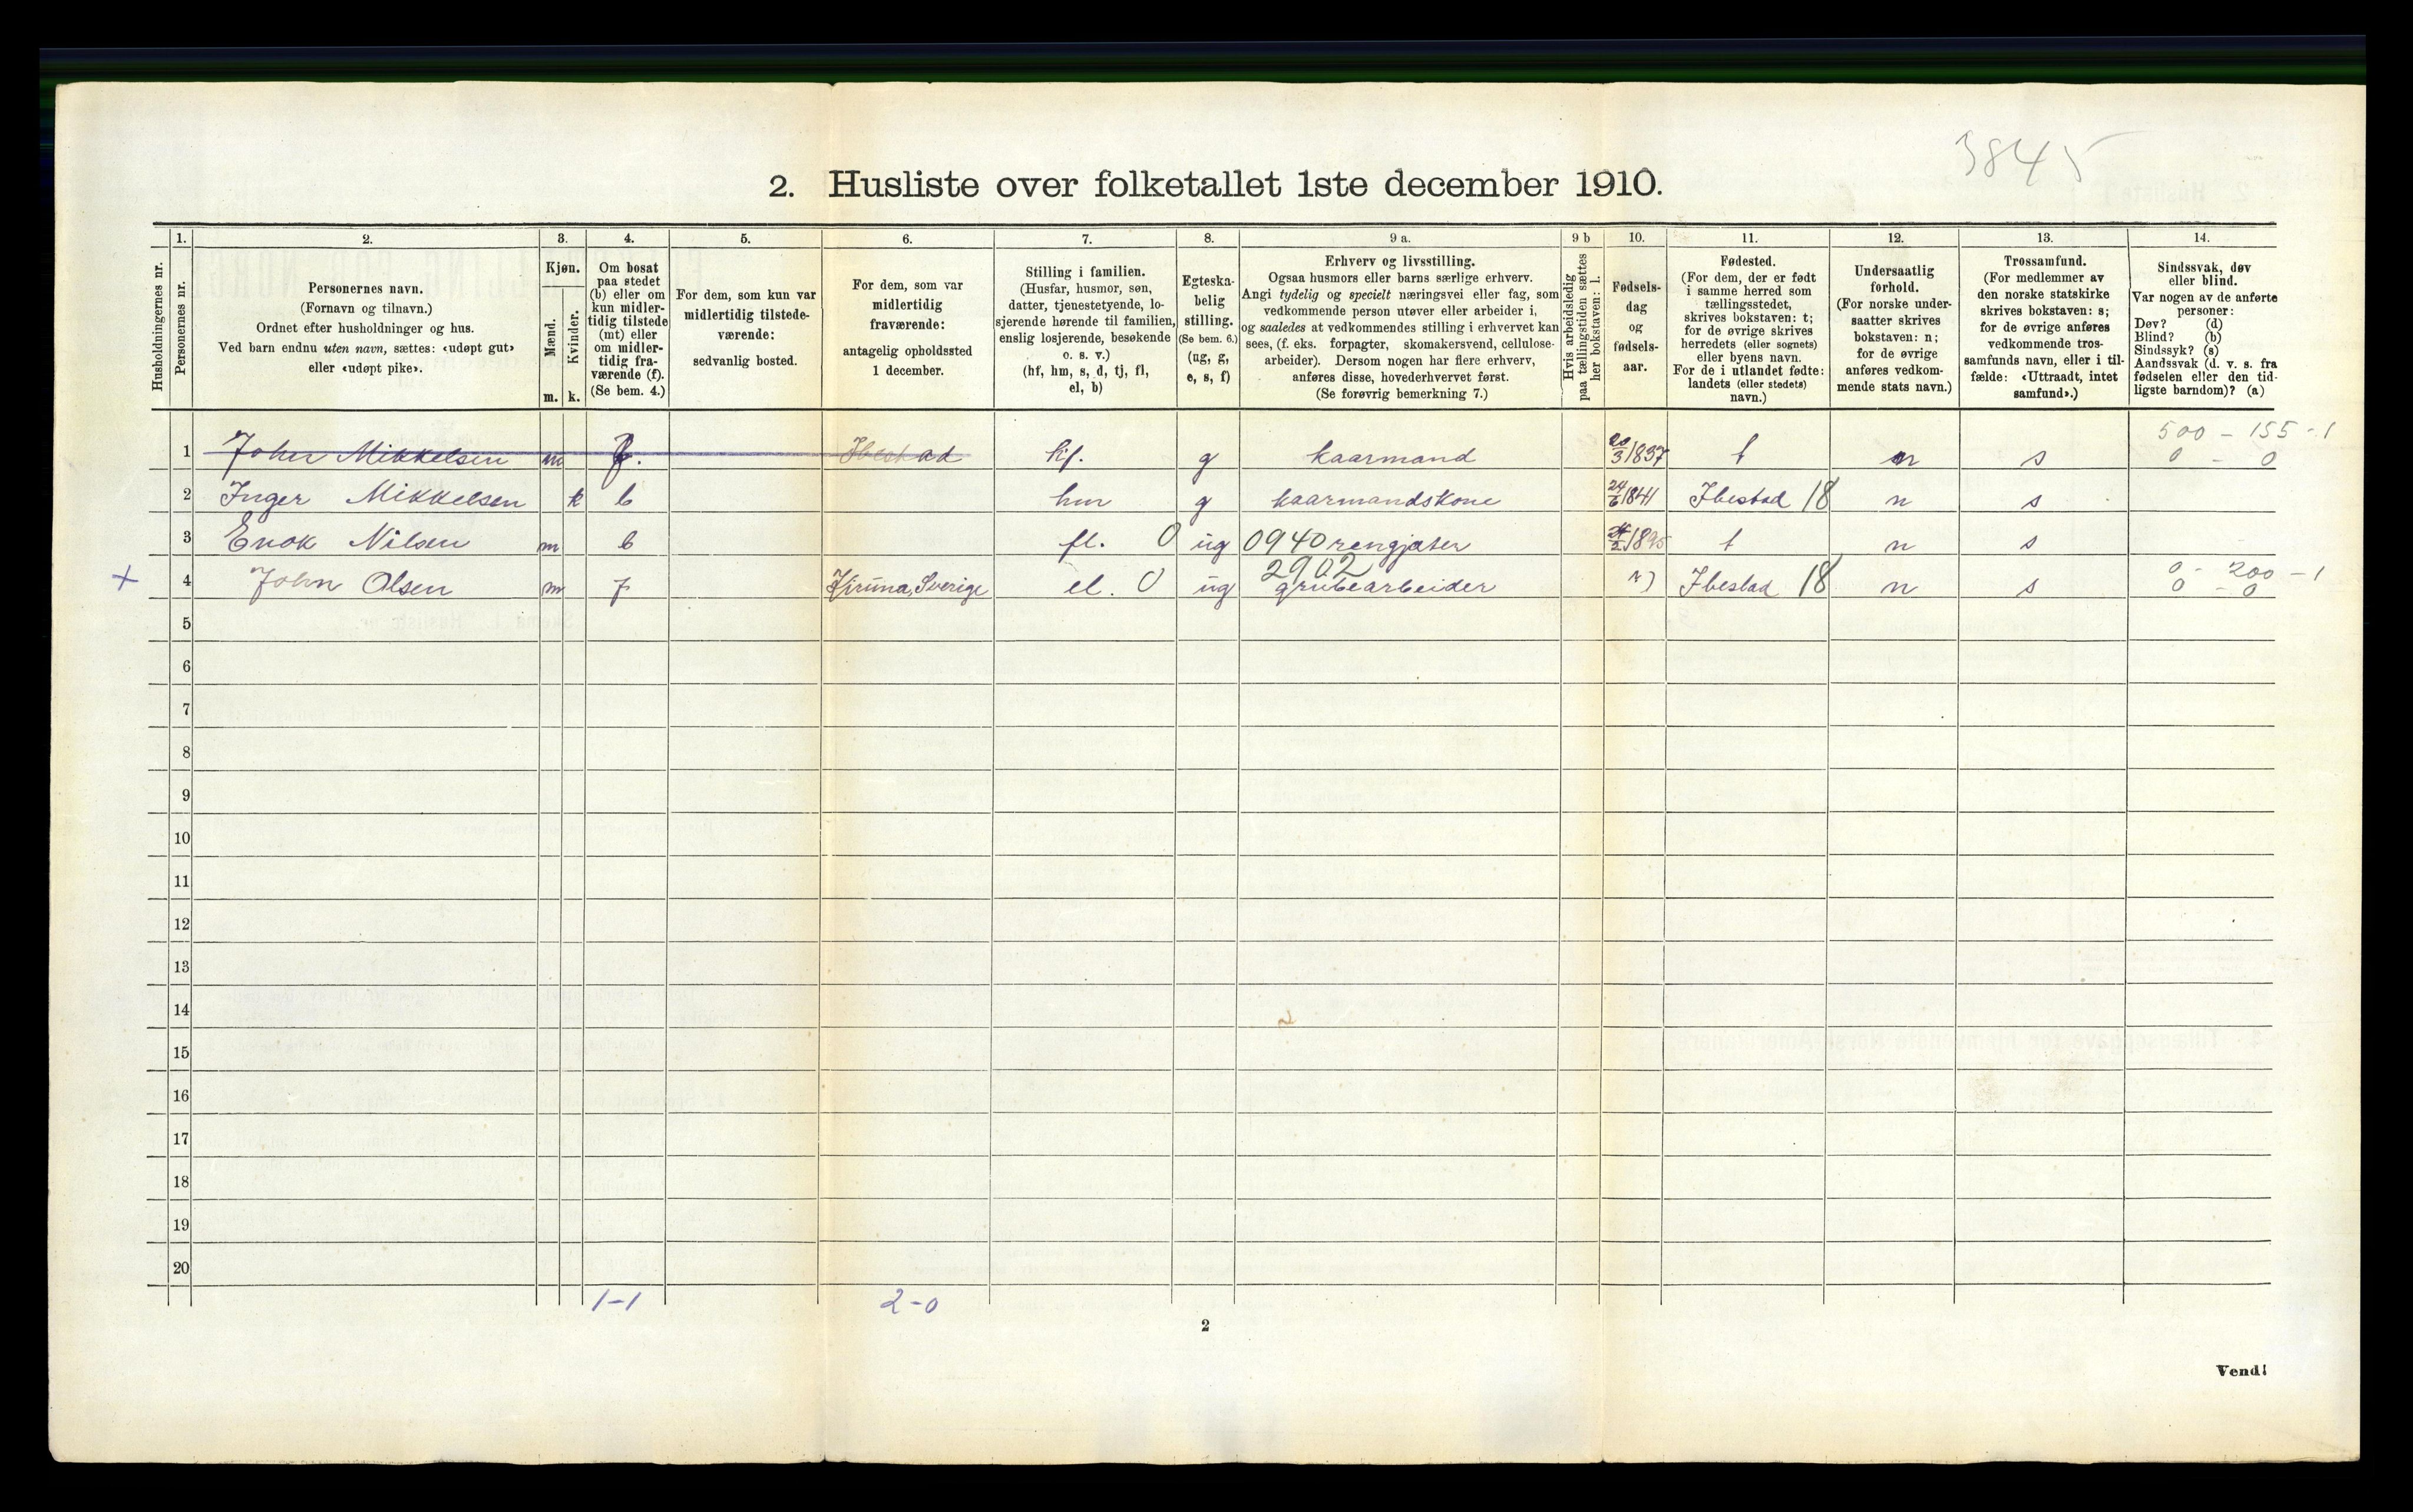 3845
2. Husliste over folketallet 1ste december 1910.
Husholdningernes nr.
1.
Personernes nr.
2.
Personernes navn.
(Fornavn og tilnavn.)
Ordnet efter husholdninger og hus.
Ved barn endnu uten navn, sættes: «udøpt gut»
eller «udøpt pike».
3.
Kjøn.
Mænd.
Kvinder.
m. k.
4.
Om bosat
paa stedet
(b) eller om
kun midler-
tidig tilstede
(mt) eller
om midler-
tidig fra-
værende (f).
(Se bem. 4.)
5.
For dem, som kun var
midlertidig tilstede-
værende:
sedvanlig bosted.
6.
For dem, som var
midlertidig
fraværende:
antagelig opholdssted
1 december.
7.
Stilling i familien.
(Husfar, husmor, søn,
datter, tjenestetyende, lo-
sjerende hørende til familien,
enslig losjerende, besøkende
o. s. v.)
(hf, hm, s, d, tj, fl,
el, b)
8.
Egteska-
belig
stilling.
(Se bem. 6.)
(ug, g,
e, s, f)
9 a.
Erhverv og livsstilling.
Ogsaa husmors eller barns særlige erhverv.
Angi tydelig og specielt næringsvei eller fag, som
vedkommende person utøver eller arbeider i,
og saaledes at vedkommendes stilling i erhvervet kan
sees, (f. eks. forpagter, skomakersvend, cellulose-
arbeider). Dersom nogen har flere erhverv,
anføres disse, hovederhvervet først.
(Se forøvrig bemerkning 7.)
9 b
Hvis arbeidsledig
paa tællingstiden sættes
her bokstaven: l.
10.
Fødsels-
dag
og
fødsels-
aar.
11.
Fødested.
(For dem, der er født
i samme herred som
tællingsstedet,
skrives bokstaven: t;
for de øvrige skrives
herredets (eller sognets)
eller byens navn.
For de i utlandet fødte:
landets (eller stedets)
navn.)
12.
Undersaatlig
forhold.
(For norske under-
saatter skrives
bokstaven: n;
for de øvrige
anføres vedkom-
mende stats navn.)
13.
Trossamfund.
(For medlemmer av
den norske statskirke
skrives bokstaven: s;
for de øvrige anføres
vedkommende tros-
samfunds navn, eller i til-
fælde: «Uttraadt, intet
samfund».)
14.
Sindssvak, døv
eller blind.
Var nogen av de anførte
personer:
Døv? (d)
Blind? (b)
Sindssyk? (s)
Aandssvak (d. v. s. fra
fødselen eller den tid-
ligste barndom)? (a)
500 - 155 - 1
1 John Mikkelsen m f. Ibestad hf. g kaarmand 20/3 1837 t n s 0 - 0
2 Inger Mikkelsen k b hm g kaarmandskone 24/6 1841 Ibestad 18 n s
3 Enok Nilsen m b fl. 0 ug 0940 rengjæter t n s
2902 0 - 200 - 1
+ 4 John Olsen m f Kiruna, Sverige el. 0 ug grubearbeider Ibestad 18 n s 0 - 0
5
6
7
8
9
10
11
12
13
14
15
16
17
18
19
20
1-1 2-0
2
Vend!